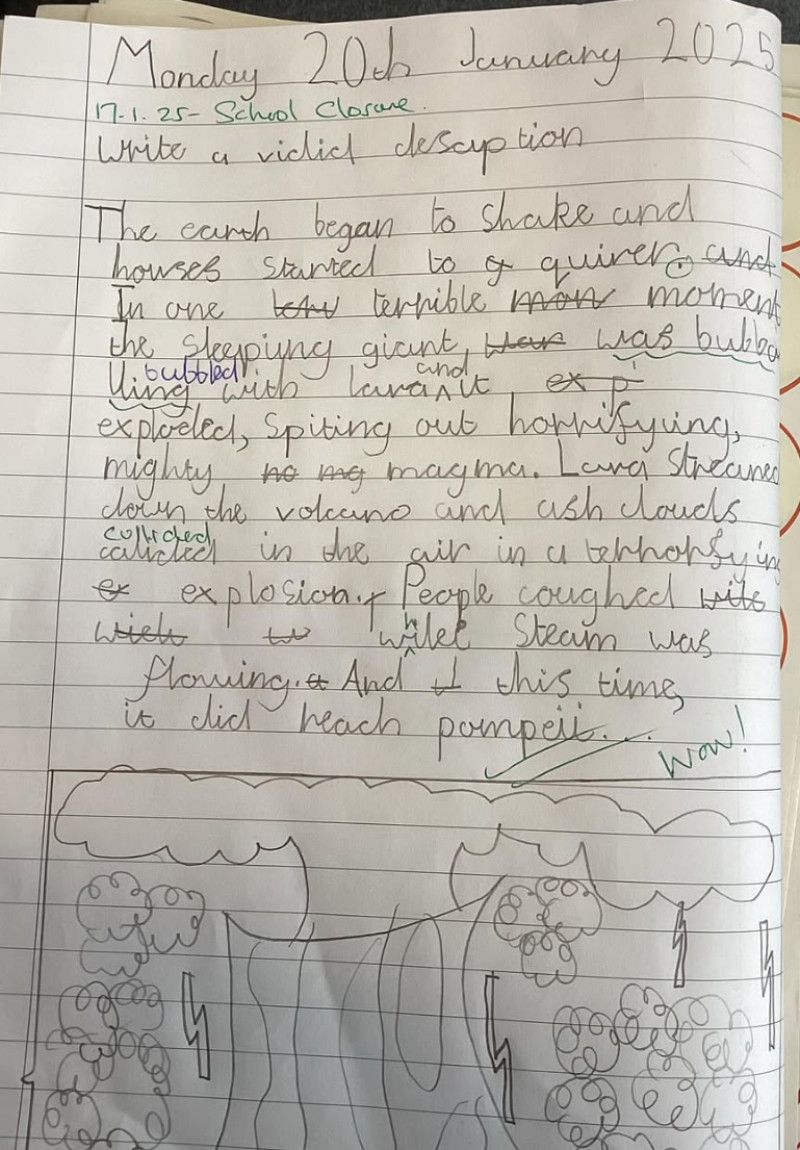 Monday 20th January 2025
17.1.25- School Closure.
Write a vidid descuption
The earth began to shake and
houses started to quiver.
In one terrible moment
the sleepiung giant, was bubba
bubbled and
lling with lava it
exploded, Spiting out horrifyiung,
mighty magma. Lava Streamed
down the volcano and ash clouds
collided
calided in the air in a terrhorfying
explosion. People coughed
whilet Steam was
flowing. And this time,
it did reach pompeii....
Wow!